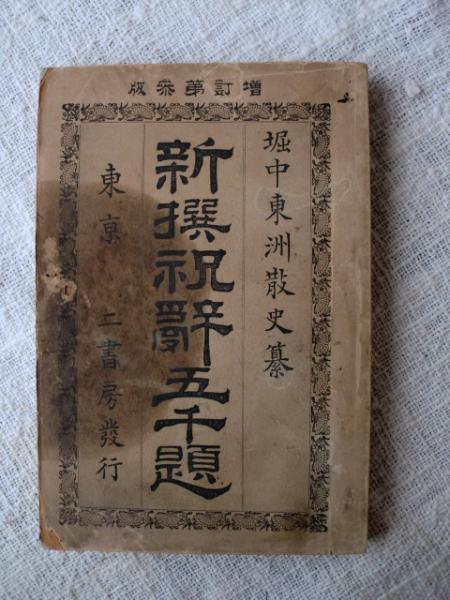 増訂第叄版
堀中東洲散史纂
新撰祝辭五千題
東京 二書房發行